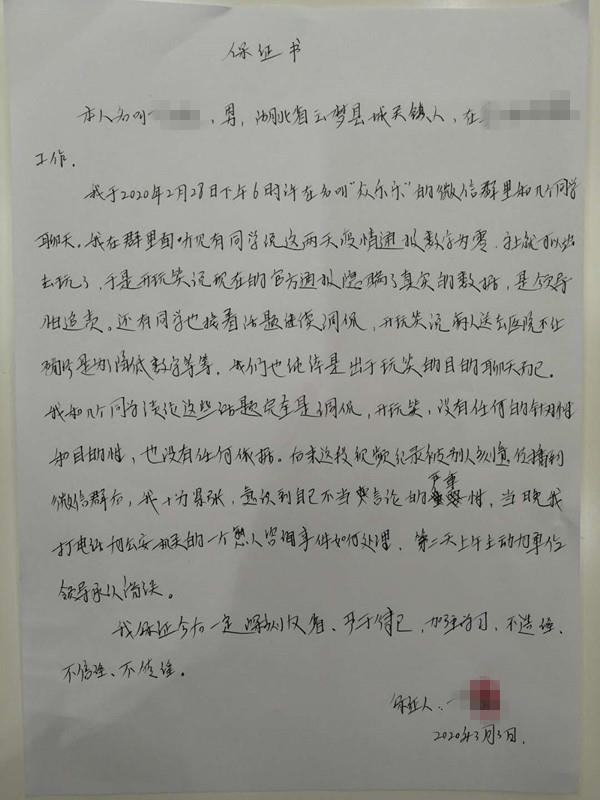 保证书
本人名叫，男，湖北省云梦县城关镇人，在
工作。
我于2020年2月28日下午6时许在名叫“众乐乐”的微信群里和几个同学
聊天。我在群里面听见有同学说这两天疫情通报数字为零，马上就可以出
去玩了，于是开玩笑说现在的官方通报隐瞒了真实的数据，是领导
怕追责。还有同学也接着话题继续调侃，开玩笑说病人送去医院不让
确诊是为降低数字等等。我们也纯粹是出于玩笑的目的聊天而已。
我和几个同学谈论这些话题完全是调侃，开玩笑，没有任何的针对性
和目的性，也没有任何依据。后来这段视频纪录被别人刻意传播到
微信群后，我十分紧张，意识到自己不当言论的严重性，当晚我
打电话向公安机关的一个熟人咨询事件如何处理，第二天上午主动向单位
领导承认错误。
我保证今后一定深刻反省、严于律己，加强学习，不造谣、
不信谣、不传谣。
保证人：
2020年3月3日.